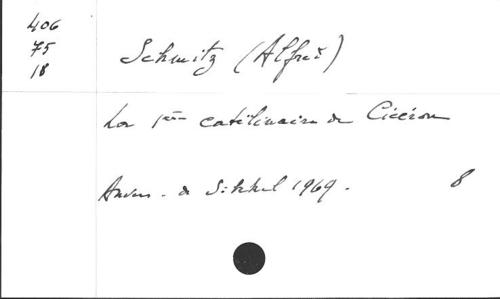 406
75
18
Schmitz (Alfred)
La 1ère catilinaire de Cicéron
Anvers - de Sikkel 1969.
8